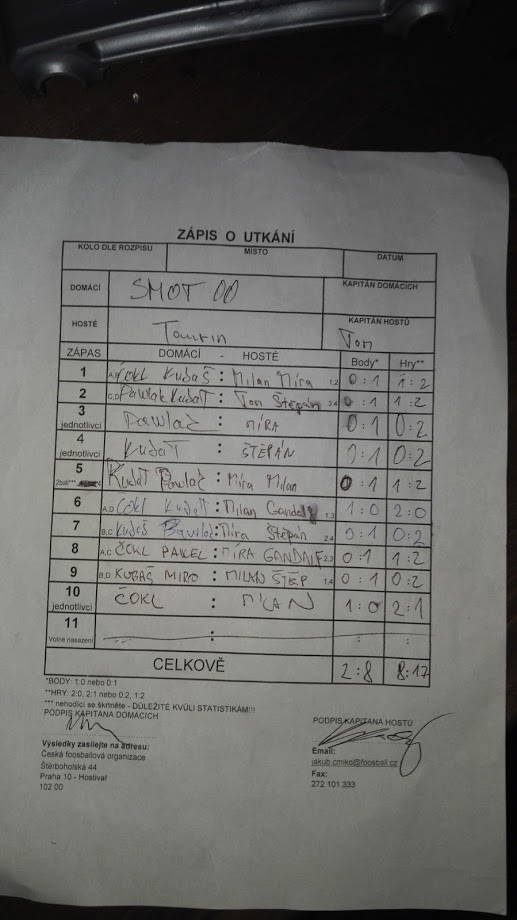 ZÁPIS O UTKÁNÍ
KOLO DLE ROZPISU MÍSTO DATUM
DOMÁCÍ SMOT 00 KAPITÁN DOMÁCÍCH
HOSTÉ Tourin KAPITÁN HOSTŮ Tom
ZÁPAS DOMÁCÍ - HOSTÉ Body* Hry**
1 A,B ČOKL Kubaš : Milan Míra 1,2 0:1 1:2
2 C,D Pawlak Kudat : Tom Štěpán 3,4 0:1 1:2
3 jednotlivci Pawlač : MÍRA 0:1 0:2
4 jednotlivci Kudat : ŠTĚPÁN 0:1 0:2
5 2ball*** Kudat Pawlač : Míra Milan 0:1 1:2
6 A,D ČOKL Kudat : Milan Gandalf 1,3 1:0 2:0
7 B,C Kubaš Pawlač : Míra Štěpán 2,4 0:1 0:2
8 A,C ČOKL PAWEL : MÍRA GANDALF 2,3 0:1 1:2
9 B,D KUBAŠ MIRO : MILAN ŠTĚP 1,4 0:1 0:2
10 jednotlivci ČOKL : MILAN 1:0 2:1
11 Volné nasazení : : :
CELKOVĚ 2:8 8:17
*BODY: 1:0 nebo 0:1
**HRY: 2:0, 2:1 nebo 0:2, 1:2
*** nehodící se škrtněte - DŮLEŽITÉ KVŮLI STATISTIKÁM!!!
PODPIS KAPITÁNA DOMÁCÍCH PODPIS KAPITÁNA HOSTŮ
Výsledky zasílejte na adresu:
Česká foosballová organizace
Štěrboholská 44
Praha 10 - Hostivař
102 00
Email:
jakub.cmiko@foosball.cz
Fax:
272 101 333